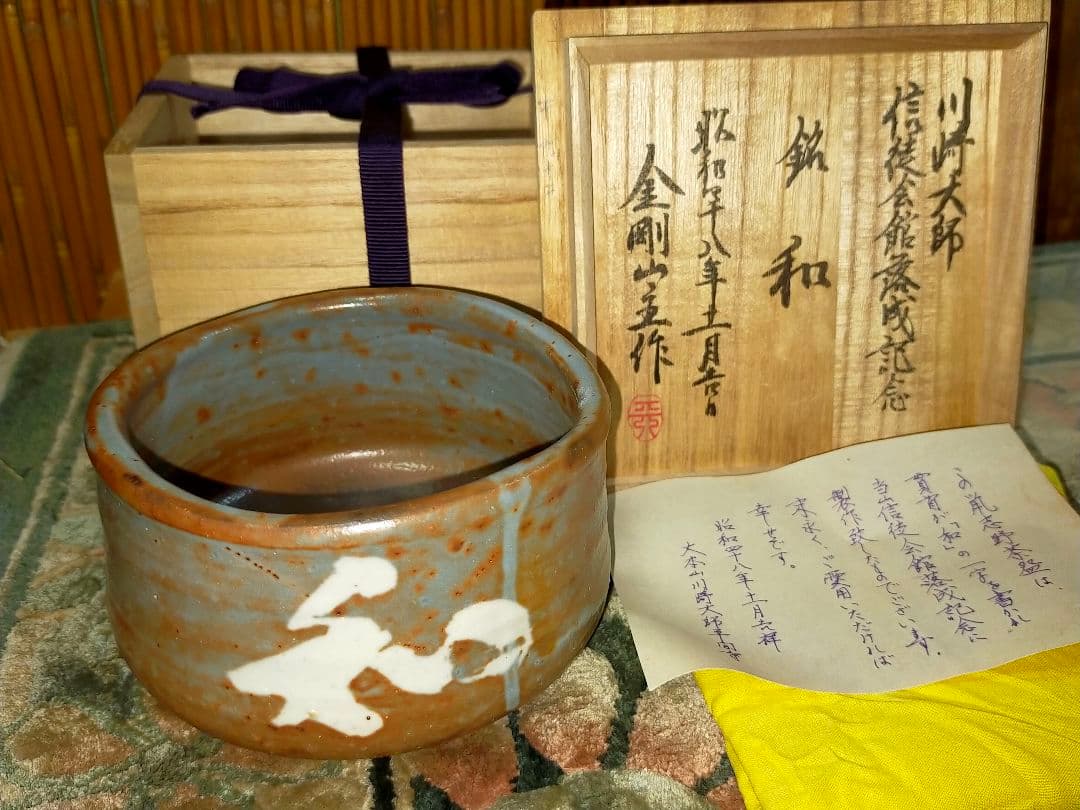 川崎大師
信徒会館落成記念
銘 和
昭和四十八年十一月吉日
金剛山主作
和
この鼠志野茶盌は、
貫首が「和」の一字を書かれ
当山信徒会館落成記念に
製作致したものでございます。
末永くご愛用いただければ
幸せです。
昭和四十八年十一月吉祥
大本山川崎大師平間寺